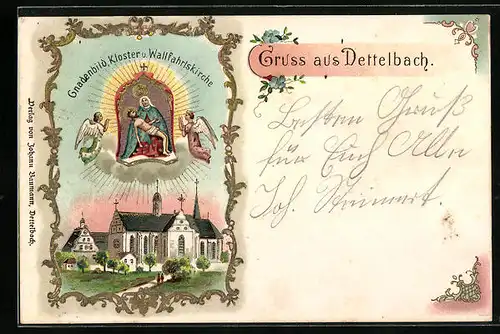 Gnadenbild, Kloster u. Wallfahrtskirche
Gruss aus Dettelbach.
Besten Gruß
für Euch Alle
Joh.
Verlag von Johann Baumann, Dettelbach.